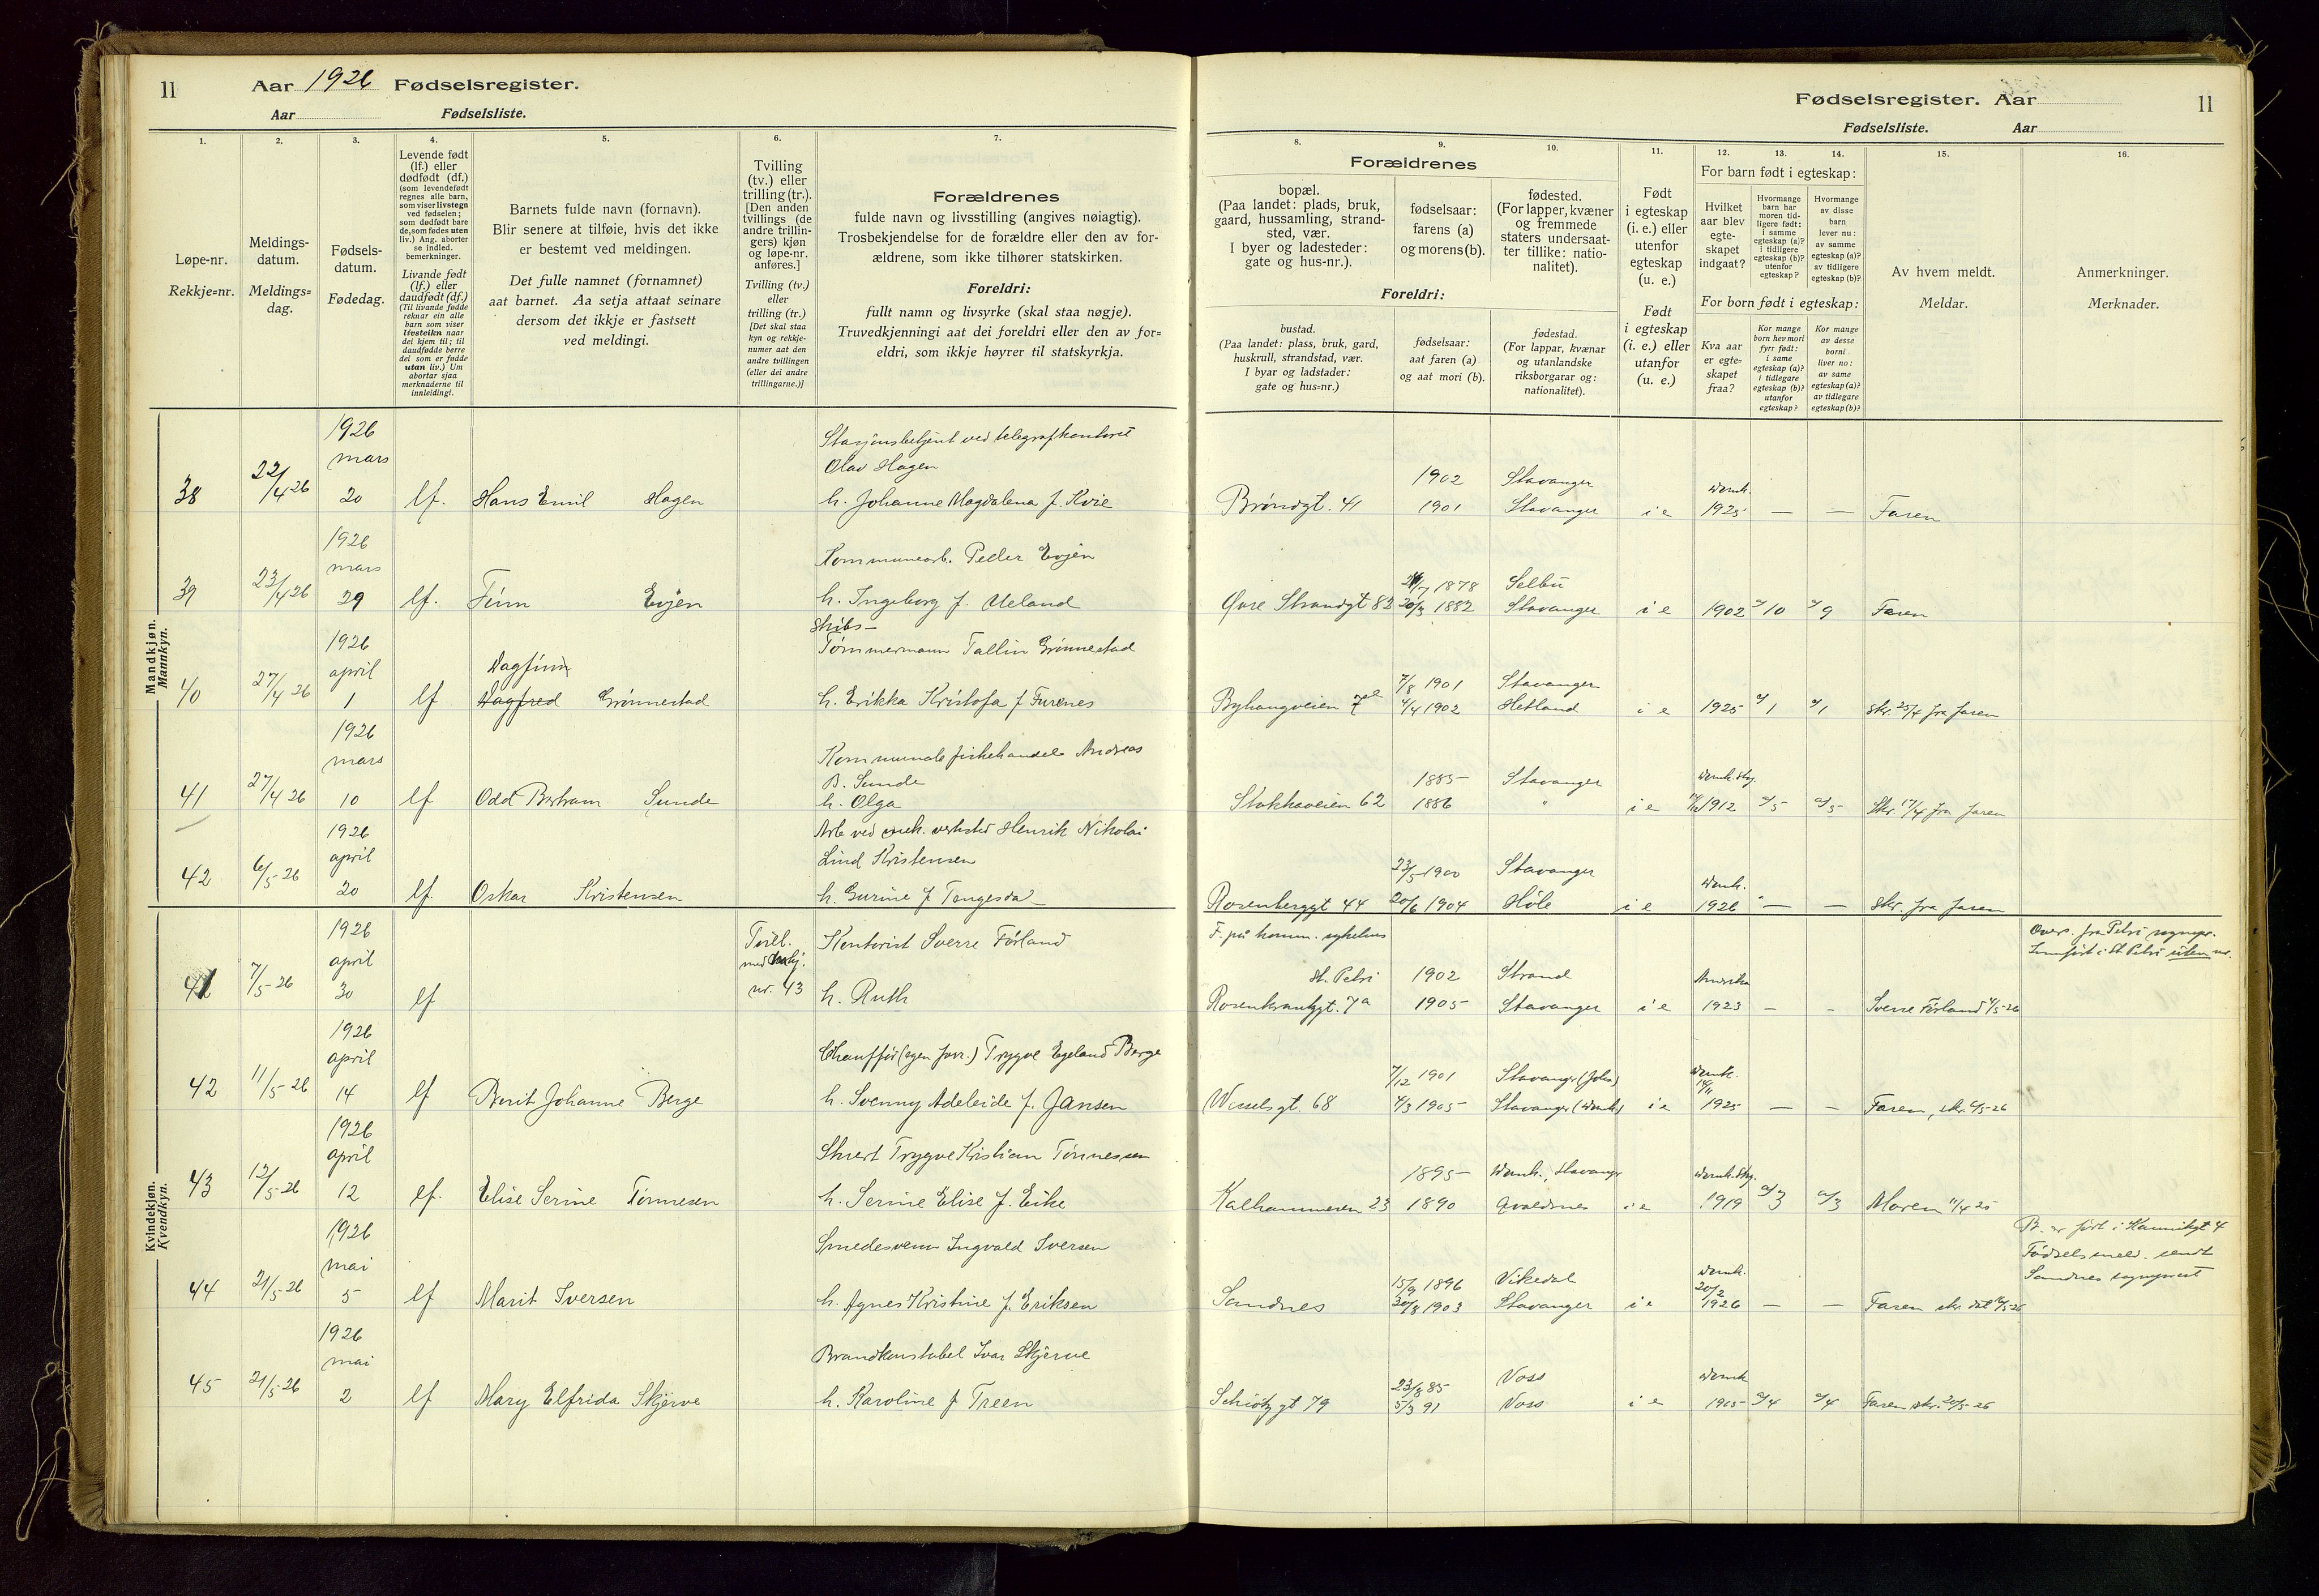 11
Aar 1926 Fødselsregister.
Aar Fødselsliste.
Fødselsregister. Aar
11
Fødselsliste. Aar
1.
Løpe-nr.
Rekkje=nr.
2.
Meldings-
datum.
Meldings=
dag.
3.
Fødsels-
datum.
Fødedag.
4.
Levende født
(lf.) eller
dødfødt (df.)
(som levendefødt
regnes alle barn,
som viser livstegn
ved fødselen;
som dødfødt bare
de, som fødes uten
liv.) Ang. aborter
se indled.
bemerkninger.
Livande født
(lf.) eller
daudfødt (df.)
(Til livande fødde
reknar ein alle
barn som viser
livsteikn naar
dei kjem til; til
daudfødde berre
dei som er fødde
utan liv.) Um
abortar sjaa
merknaderne til
innleidingi.
5.
Barnets fulde navn (fornavn).
Blir senere at tilføie, hvis det ikke
er bestemt ved meldingen.
Det fulle namnet (fornamnet)
aat barnet. Aa setja attaat seinare
dersom det ikkje er fastsett
ved meldingi.
6.
Tvilling
(tv.) eller
trilling (tr.).
[Den anden
tvillings (de
andre trillin-
gers) kjøn
og løpe-nr.
anføres.]
Tvilling (tv.)
eller
trilling (tr.)
[Det skal staa
kyn og rekkje-
numer aat den
andre tvillingen
(eller dei andre
trillingarne.)]
7.
Forældrenes
fulde navn og livsstilling (angives nøiagtig).
Trosbekjendelse for de forældre eller den av for-
ældrene, som ikke tilhører statskirken.
Foreldri:
fullt namn og livsyrke (skal staa nøgje).
Truvedkjenningi aat dei foreldri eller den av for=
eldri, som ikkje høyrer til statskyrkja.
8.
Forældrenes
bopæl.
(Paa landet: plads, bruk,
gaard, hussamling, strand-
sted, vær.
I byer og ladesteder:
gate og hus-nr.).
Foreldri:
bustad.
(Paa landet: plass, bruk, gard,
huskrull, strandstad, vær.
I byar og ladstader:
gate og hus=nr.)
9.
fødselsaar:
farens (a)
og morens (b).
fødselsaar:
aat faren (a)
og aat mori (b).
10.
fødested.
(For lapper, kvæner
og fremmede
staters undersaat-
ter tillike: natio-
nalitet).
fødestad.
(For lappar, kvænar
og utanlandske
riksborgarar og:
nationalitet).
11.
Født
i egteskap
(i. e.) eller
utenfor
egteskap
(u. e.)
Født
i egteskap
(i. e.) eller
utanfor
(u. e.)
12.
13.
14.
For barn født i egteskap:
Hvilket
aar blev
egte-
skapet
indgaat?
Hvormange
barn har
moren tid-
ligere født:
i samme
egteskap (a)?
i tidligere
egteskap (b)?
utenfor
egteskap?
Hvormange
av disse
barn
lever nu:
av samme
egteskap (a)?
av tidligere
egteskap (b)?
For born født i egteskap:
Kva aar
er egte=
skapet
fraa?
Kor mange
born hev mori
fyrr født:
i same
egteskap (a)?
i tidlegare
egteskap (b)?
utanfor
egteskap?
Kor mange
av desse
borni
liver no:
av same
egteskap (a)?
av tidlegare
egteskap (b)?
15.
Av hvem meldt.
Meldar.
16.
Anmerkninger.
Merknader.
Mandkjøn.
Mannkyn.
38 22/4 26 1926 mars 20 lf. Hans Emil Hagen
Stasjonsbetjent ved telegrafkontoret
Olav Hagen
h. Johanne Magdalena f. Kvie
Brøndgt. 41 1902 Stavanger
1901 Stavanger i e 1925 — — Faren
39 23/4 26 1926 mars 29 lf. Finn Evjen
Kommunearb. Peder Evjen
h. Ingeborg f. Ueland
Øvre Strandgt 82 1878 Selbu
20/3 1882 Stavanger i e 1902 a/10 a/9 Faren
40 27/4 26 1926 april 1 lf Dagfinn
Dagfred Grønnestad
Skibs-
Tømmermann Tallin Grønnestad
h. Erikka Kristofa f Furenes
Byhaugveien 7/8 1901 Stavanger
4/4 1902 Hetland i e 1925 a/1 a/1 skr. 25/4 fra faren
41 27/4 26 1926 mars 10 lf Odd Bertram Sunde
Kommunale fiskehandel Andreas
B. Sunde
h. Olga
Stokkaveien 62 1885 Stavanger
1886 " i e 1912 a/5 a/5 Skr. 17/4 fra faren
42 6/5-26 1926 april 20 lf. Oskar Kristensen
Arb ved mek. verksted Henrik Nikolai
Lind Kristensen
h. Gurine f Tengesdal
Rosenberggt 44 23/5-1900 Stavanger
20/6 1904 Høle i e 1926 — — skr. fra faren
Kvindekjøn.
Kvendkyn.
41 7/5-26 1926 april 30 lf
Tvill.
nr. 43
Kontorist Sverre Førland
h. Ruth
F. på komm. sykehus
St. Petri 1902 Strand Amerika
Rosenkrantzgt. 7a 1905 Stavanger i e 1923 — - Sverre Førland 4/5-26
Overs. fra Petri sognepr.
Innført i St Petri uten nr.
42 11/5-26 1926 april 14 lf Berit Johanne Berge
Chauffør (egen forr.) Trygve Egeland Berge
h. Svenny Adeleide f. Jansen
Wesselsgt. 68 7/12 1901 Stavanger (Joh.)
4/3 1905 Stavanger i e 1925 — — Faren, skr. 6/5-26
43 12/5-26 1926 april 12 lf. Elise Serine Tønnesen
Stuert Trygve Kristian Tønnessen
h. Serine Elise f. Eike
Kalhammeren 23 1895 Stavanger
1890 Avaldsnes i e 1919 a/3 a/3 Moren
44 21/5-26 1926 mai 5 lf Marit Iversen
Smedesvenn Ingvald Iversen
h. Agnes Kristine f. Eriksen
Sandnes 15/9 1896 Vikedal
30/8 1903 Stavanger i e 20/2 1926 — — Faren
B. er født i Kannikgt 4
Fødselsmeld. sendt
Sandnes sogneprest
45 21/5-26 1926 mai 2 lf Mary Elfrida Skjerve
Brandkonstabel Ivar Skjerve
h. Karoline f Treen
Schiøtzgt 79 23/8 85 Voss
5/3 91 Voss i e 1915 a/4 a/4 Faren skr. 20/5-26